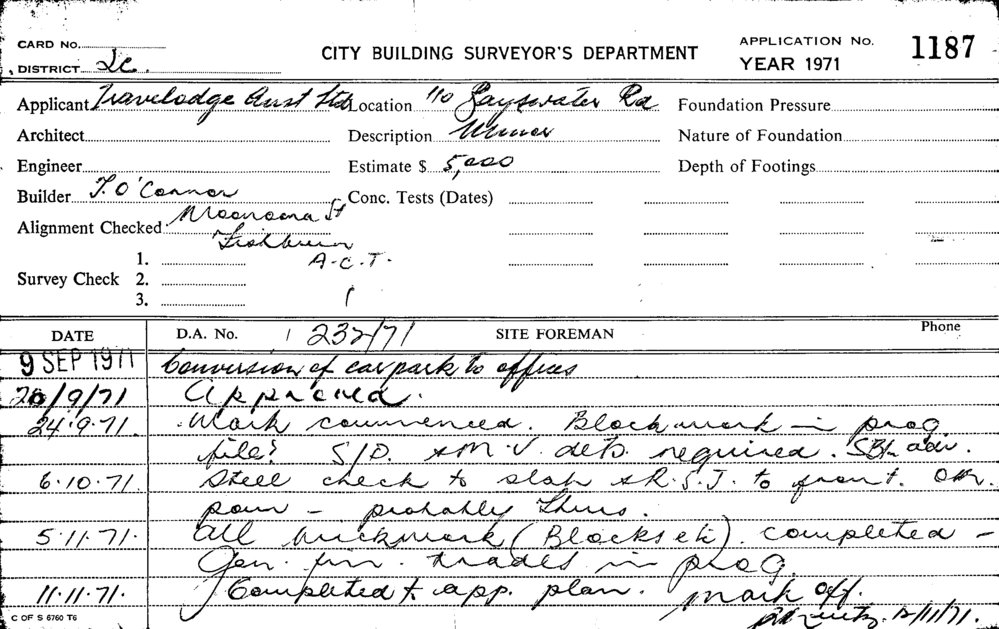 CARD No.
DISTRICT 2c.
CITY BUILDING SURVEYOR'S DEPARTMENT
APPLICATION No. 1187
YEAR 1971
Applicant Travelodge Aust Ltd Location 110 Bayswater Rd Foundation Pressure
Architect Description Minor Nature of Foundation
Engineer Estimate $ 5,000 Depth of Footings
Builder T. O'Connor Conc. Tests (Dates)
Alignment Checked St
A.C.T.
Survey Check 1.
2.
3.
DATE D.A. No. 232/71 SITE FOREMAN Phone
9 SEP 1971 Conversion of carpark to offices
20/9/71 Approved.
24.9.71. Work commenced. Blockwork in prog
file? S/D. & M.V. dets. required. adv.
6.10.71. Steel check to slab & R.S.J. to front. OK.
pour - probably Thurs.
5.11.71. All brickwork (Blocks etc). completed -
Gen. fin. trades in prog
11.11.71. Completed to app. plan. Mark off.
12/11/71.
C OF S 6760 T6